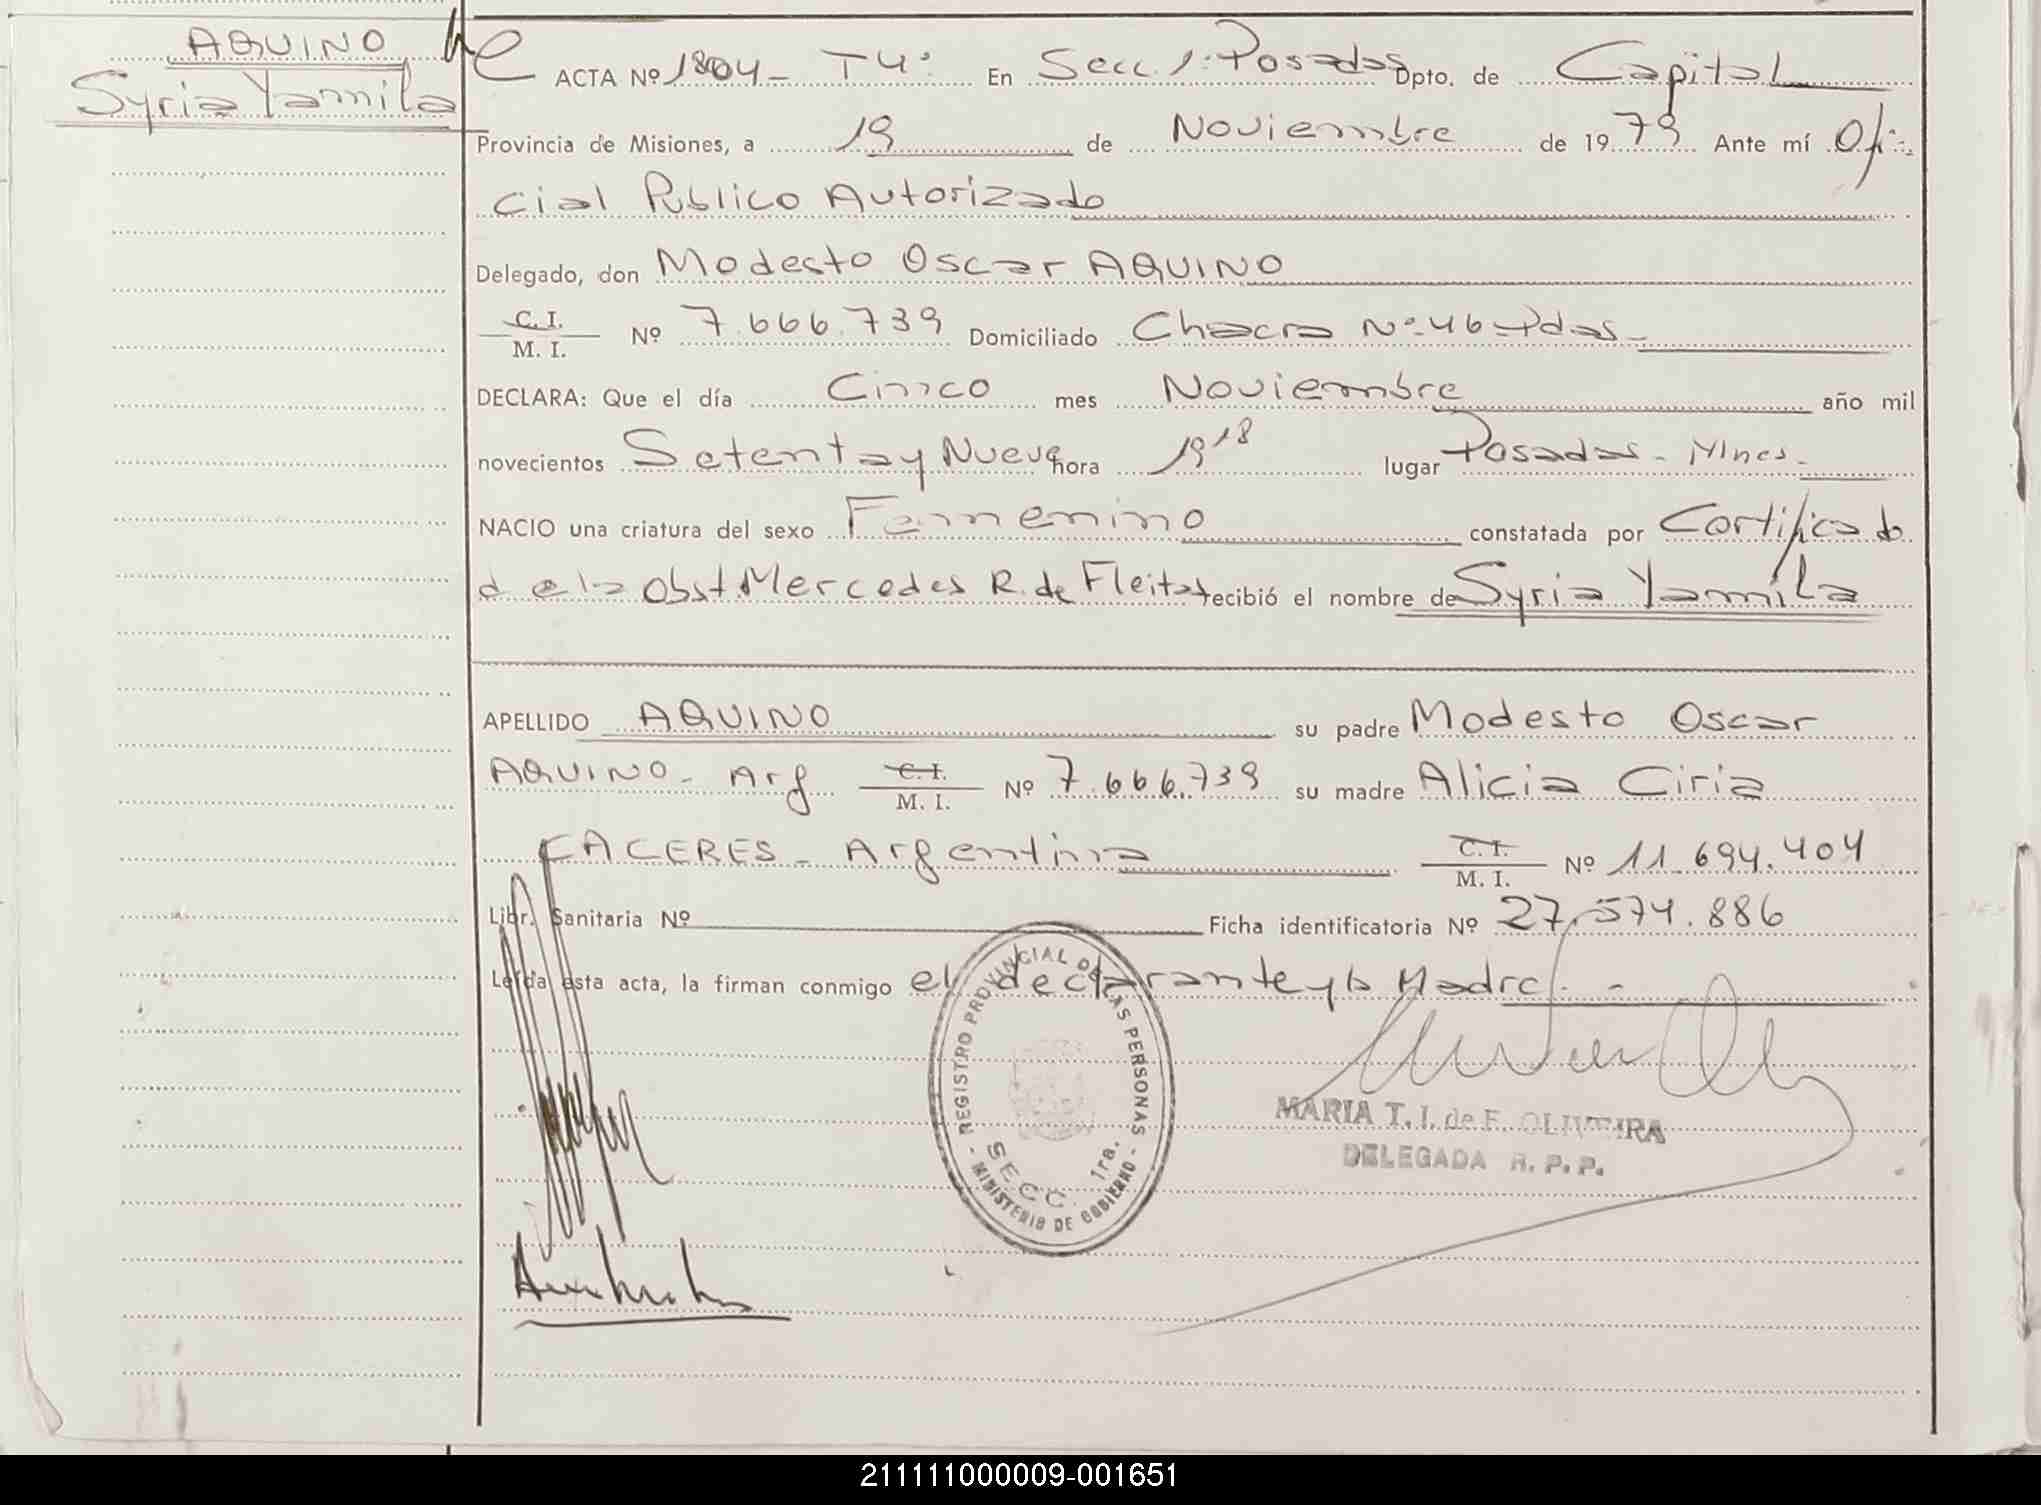 AQUINO
Syria Yamila
ACTA Nº 1804- T4º En Secc. 1ª Posadas Dpto. de Capital
Provincia de Misiones, a 19 de Noviembre de 1979 Ante mí Ofi-
cial Publico Autorizado
Delegado, don Modesto Oscar AQUINO
C. I.
M. I. Nº 7.666.739 Domiciliado Chacra Nº 46-Pdas-
DECLARA: Que el día Cinco mes Noviembre año mil
novecientos Setenta y Nueve hora 19 18 lugar Posadas - Mnes-
NACIO una criatura del sexo Femenino constatada por Certificado
de la Obst. Mercedes R. de Fleitas recibió el nombre de Syria Yamila
APELLIDO AQUINO su padre Modesto Oscar
AQUINO - Arg C. I.
M. I. Nº 7.666.739 su madre Alicia Ciria
CACERES - Argentina C. I.
M. I. Nº 11.694.404
Libr. Sanitaria Nº Ficha identificatoria Nº 27.574.886
Leída esta acta, la firman conmigo el declarante y la Madre. -
REGISTRO PROVINCIAL DE LAS PERSONAS
SECC. 1ra.
- MINISTERIO DE GOBIERNO -
MARIA T. I. de F. OLIVEIRA
DELEGADA R. P. P.
211111000009-001651